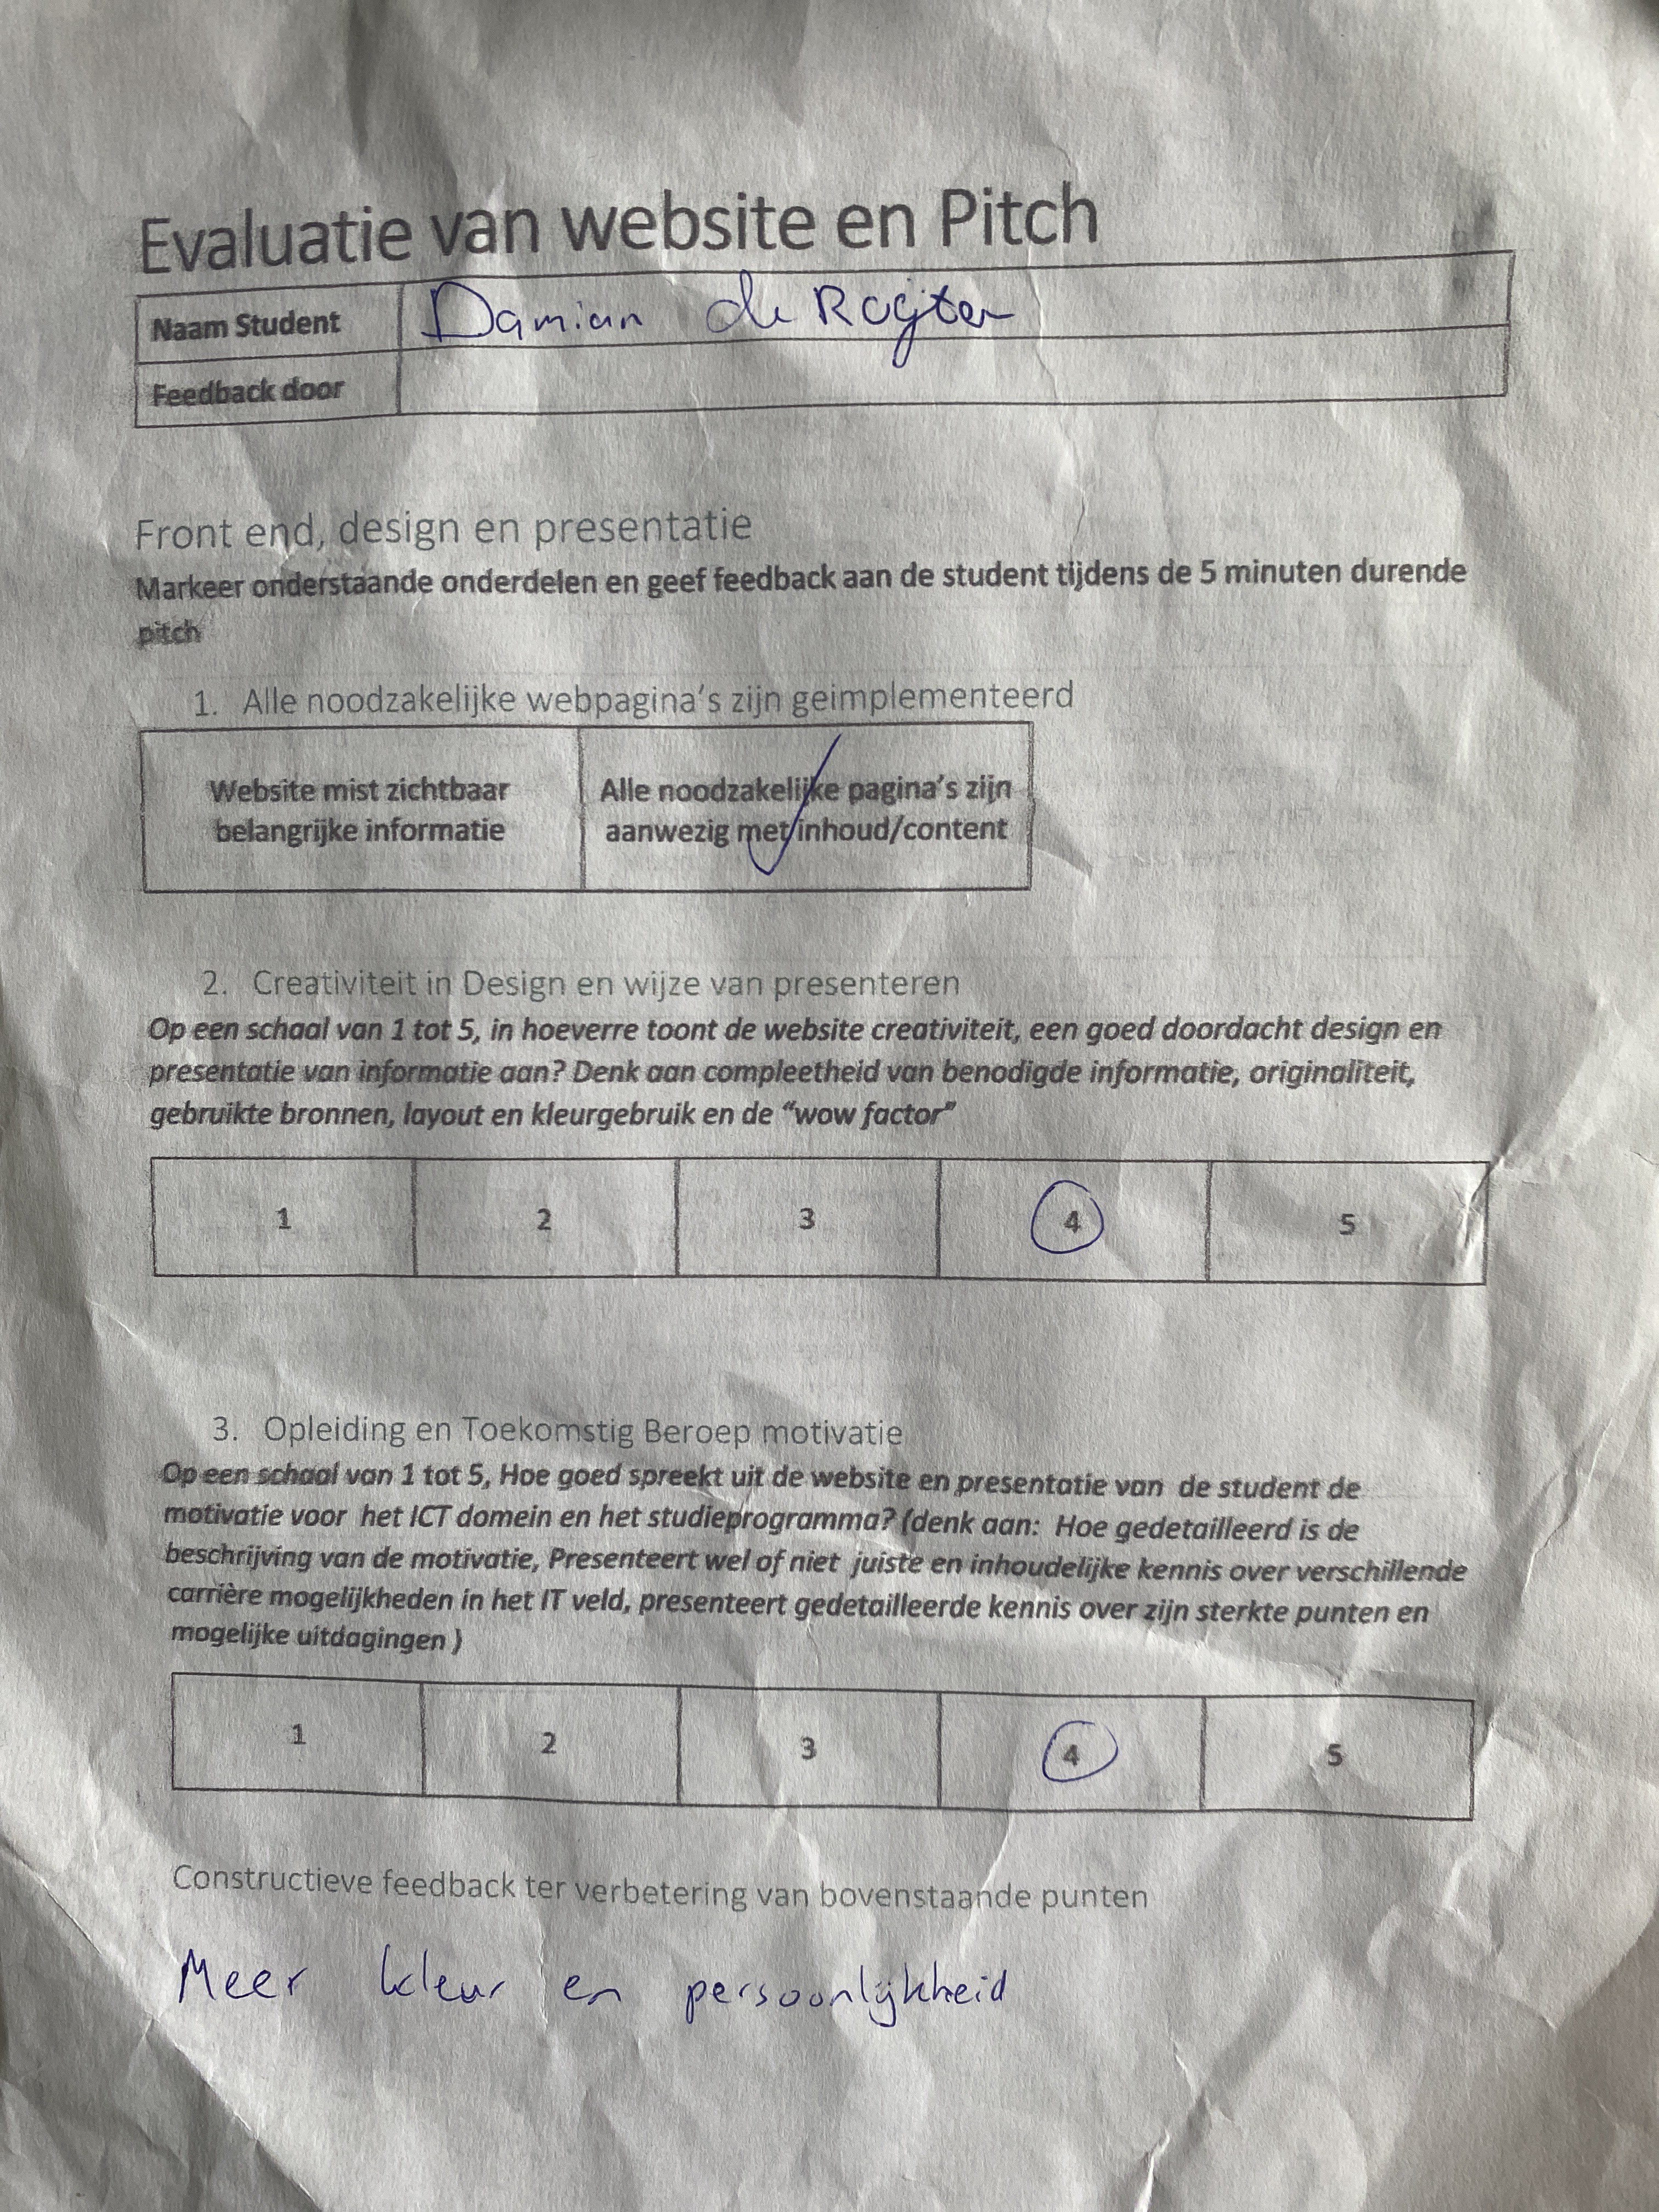 Evaluatie van website en Pitch
Naam Student Damian de Ruyter
Feedback door
Front end, design en presentatie
Markeer onderstaande onderdelen en geef feedback aan de student tijdens de 5 minuten durende
pitch
1. Alle noodzakelijke webpagina's zijn geimplementeerd
Website mist zichtbaar
belangrijke informatie
Alle noodzakelijke pagina's zijn
aanwezig met inhoud/content
2. Creativiteit in Design en wijze van presenteren
Op een schaal van 1 tot 5, in hoeverre toont de website creativiteit, een goed doordacht design en
presentatie van informatie aan? Denk aan compleetheid van benodigde informatie, originaliteit,
gebruikte bronnen, layout en kleurgebruik en de "wow factor"
1 2 3 4 5
3. Opleiding en Toekomstig Beroep motivatie
Op een schaal van 1 tot 5, Hoe goed spreekt uit de website en presentatie van de student de
motivatie voor het ICT domein en het studieprogramma? (denk aan: Hoe gedetailleerd is de
beschrijving van de motivatie, Presenteert wel of niet juiste en inhoudelijke kennis over verschillende
carrière mogelijkheden in het IT veld, presenteert gedetailleerde kennis over zijn sterkte punten en
mogelijke uitdagingen )
1 2 3 4 5
Constructieve feedback ter verbetering van bovenstaande punten
Meer kleur en persoonlijkheid